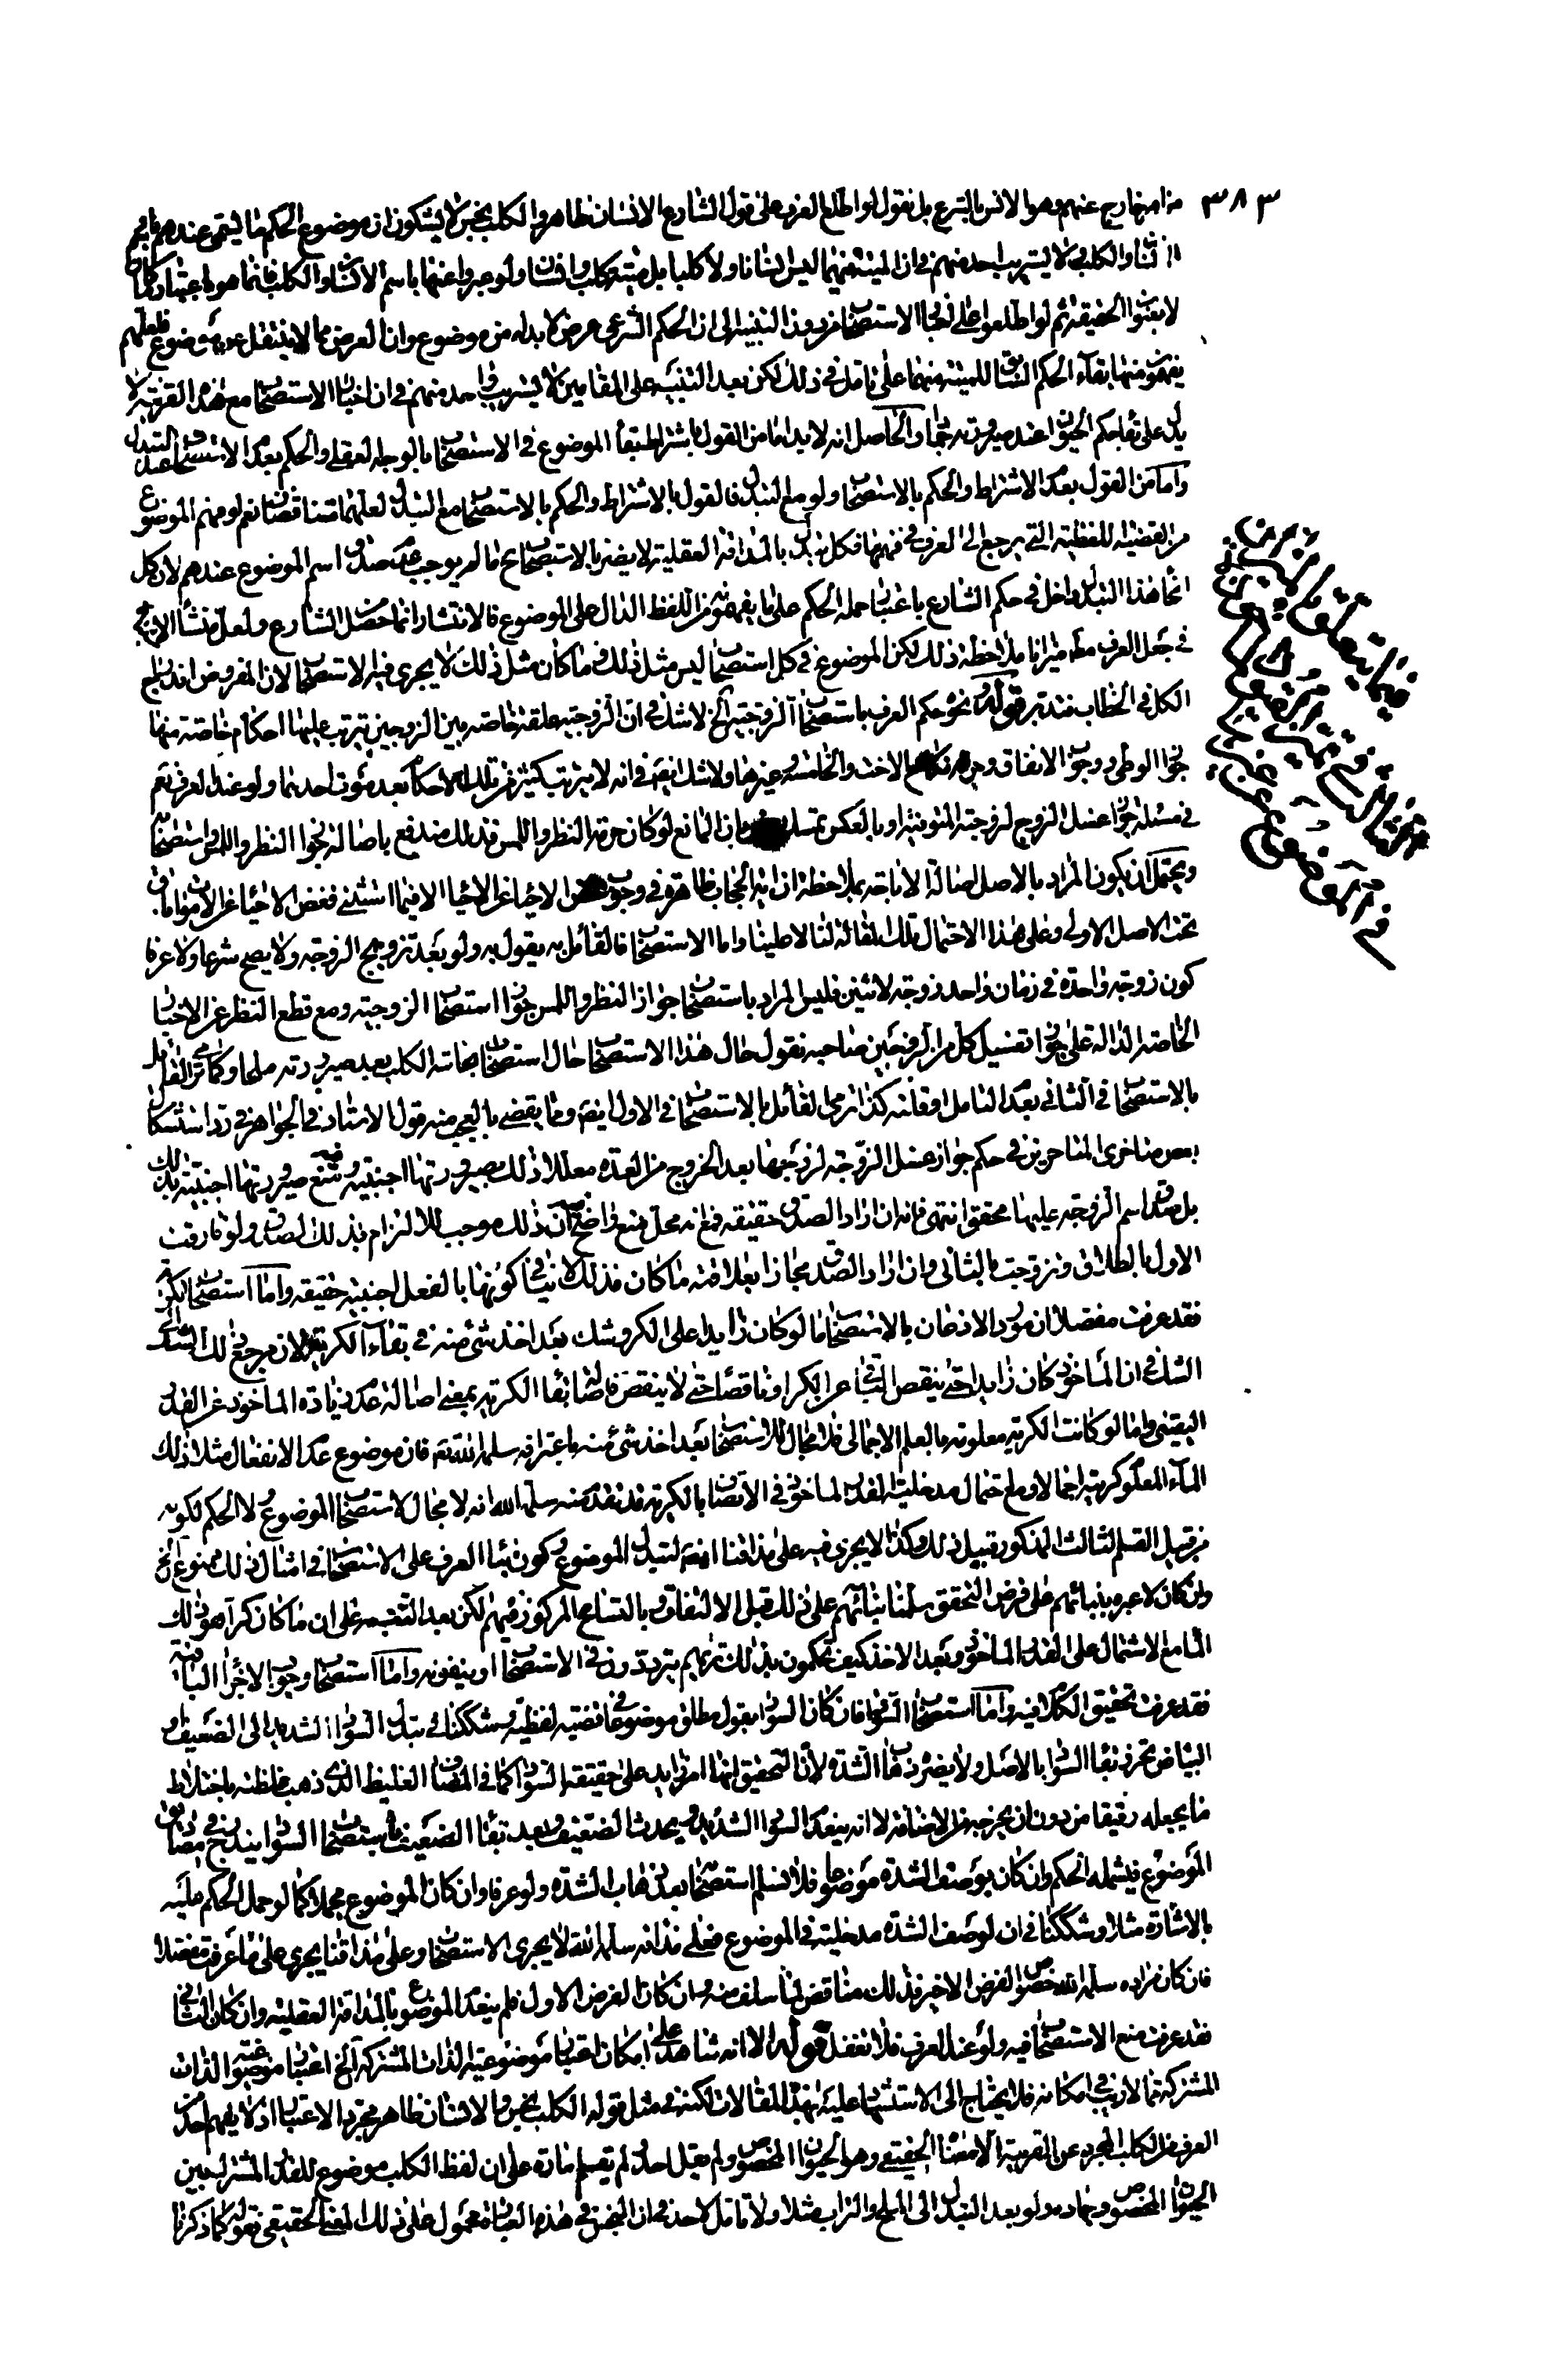 ٣٨٣
من امر خارج عنهم وهو الانس بالشرع بل نقول لو اطلع العرف على قول الشارع الانسان طاهر والكلب نجس لا يشكون ان موضوع الحكم ما يسمى عندهم
انسانا والكلب لا يستريب احد منهم فى ان الميتة منهما ليس انسانا ولا كلبا بل ميتة كلب وانسان ولو عبروا عنها باسم الانسان والكلب فانما هو باعتبار ما كان
لا بعنوان الحقيقة ثم لو اطلعوا على اخبار الاستصحاب من دون التنبيه الى ان الحكم الشرعى عرض لا بد له من موضوع وان العرض مما لا ينتقل عن موضوع فلعلهم
يفهمون منها بقاء الحكم السابق للميتة منهما على تامل فى ذلك لكن بعد التنبيه على المقامين لا يستريب احد منهم فى ان اخبار الاستصحاب مع هذه القرينة لا
يدل على بقاء حكم الحيوان عند صيرورته جمادا والحاصل انه لا بد اما من القول باشتراط بقاء الموضوع فى الاستصحاب بالوجه العقلى والحكم بعدم الاستصحاب عند التبدل
واما من القول بعدم الاشتراط والحكم بالاستصحاب ولو مع التبدل فالقول بالاشتراط والحكم بالاستصحاب مع التبدل لعلهما متناقضان نعم لو فهم الموضوع
من القضية اللفظية التى يرجع الى العرف فى فهمها فكل تبدل بالمداقة العقلية لا يضر بالاستصحاب ح ما لم يوجب عدم صدق اسم الموضوع عندهم لان كل
انحاء هذا التبدل داخل فى حكم الشارع باعتبار حمله الحكم على ما يفهمونه من اللفظ الدال على الموضوع فالانتشار انما حصل من الشارع ولعل منشأ
فى جعل العرف ميزانا ملاحظة ذلك لكن الموضوع فى كل استصحاب ليس مثل ذلك وما كان مثل ذلك لا يجرى فيه الاستصحاب لان المفروض اندراج
الكل فى الخطاب فتدبر قوله نحو حكم العرف باستصحاب الزوجية الخ لا شك فى ان الزوجية علقة خاصة بين الزوجين يترتب عليها احكام خاصة منها
جواز الوطى ووجوب الانفاق وحرمة نكاح الاخت والخامسة وغيرها ولا شك ايضا فى انه لا يترتب كثير من تلك الاحكام بعد موت احدهما ولو عند العرف نعم
فى مسئلة جواز غسل الزوج لزوجته المتوفية او بالعكس بان المانع لو كان حرمة النظر واللمس فذلك مندفع باصالة جواز النظر واللمس واستصحابه
ويحتمل ان يكون المراد بالاصل اصالة الاباحة بملاحظة ان اية الحجاب ظاهرة فى وجوب غض الاحياء عن الاحياء الا فيما استثنى فغض الاحياء عن الاموات باق
تحت الاصل الاولى وعلى هذا الاحتمال تلك المقالة لنا لا علينا واما الاستصحاب فالقائل به يقول به ولو بعد تزويج الزوجة ولا يصح شرعا ولا عرفا
كون زوجة واحدة فى زمان واحد زوجة لاثنين فليس المراد باستصحاب جواز النظر واللمس جواز استصحاب الزوجية ومع قطع النظر عن الاخبار
الخاصة الدالة على جواز تغسيل كل من الزوجين صاحبه نقول حال هذا الاستصحاب حال استصحاب نجاسة الكلب بعد صيرورته ملحا وكما نرى القائل
بالاستصحاب فى الثانى بعد التامل وفاقنه كذا نرى القائل بالاستصحاب فى الاول ايضا ومما يقضى بالعجب منه قول الاستاد فى الجواهر فى رد استشكال
بعض متاخرى المتاخرين فى حكم جواز غسل الزوجة لزوجها بعد الخروج من العدة معللا ذلك بصيرورتها اجنبية فيه منع صيرورتها اجنبية بذلك
بل صدق اسم الزوجة عليها محقق انتهى فانه ان اراد الصدق حقيقة فمع انه محل منع واضح ان ذلك موجب للالتزام بذلك الصدق ولو فارقت
الاول بالطلاق وتزوجت بالثانى وان اراد الصدق مجازا بعلاقة ما كان فذلك لا ينافى كونها بالفعل اجنبية حقيقة واما استصحاب الكرية
فقد عرفت مفصلا ان مورد الاذعان بالاستصحاب ما لو كان زايدا على الكر وشك بعد اخذ شئ منه فى بقاء الكرية لان مرجع ذلك الشك
الشك فى ان الماخوذ كان زايدا حتى ينقص الباقى عن الكر او ناقصا حتى لا ينقص فاصالة بقاء الكرية بمعنى اصالة عدم زيادة الماخوذ عن القدر
اليقينى واما لو كانت الكرية معلومة بالعلم الاجمالى فلا مجال للاستصحاب بعد اخذ شئ منه باعترافه سلمه الله تعالى فان موضوع عدم الانفعال مثلا ذلك
الماء المعلوم كريته اجمالا ومع احتمال مدخلية القدر الماخوذ فى الاتصاف بالكرية قد تقدم منه سلمه الله انه لا مجال لاستصحاب الموضوع لا الحكم لكونه
من قبيل القسم الثالث المذكور قبيل ذلك وكذا لا يجرى فيه على مذاقنا ايضا لتبدل الموضوع وكون بناء العرف على الاستصحاب فى امثال ذلك ممنوع
وان كان لا عبرة ببنائهم على فرض التحقق سلمنا بنائهم على ذلك قبل الالتفات وبالتسامح المركوز فيهم لكن بعد التنبيه على ان ما كان كرا هو ذلك
الماء مع الاشتمال على القدر الماخوذ وبعد الاخذ كيف تحكمون بذلك تريهم يترددون فى الاستصحاب او ينفونه واما استصحاب وجوب الاجزاء الباقية
فقد عرفت تحقيق الكلام فيه واما استصحاب السواد فان كان السواد بقول مطلق موضوعا فى قضية لفظية وشككنا فى تبدل السواد الشديد الى الضعيف او
البياض نحرز بقاء السواد بالاصل ولا يضره ذهاب الشدة لان التحقيق انها امر زايد على حقيقة السواد كما فى المضاف الغليظ الذى ذهب غلظته باختلاط
ما يجعله رقيقا من دون ان يخرجه من الاضافة لا انه ينعدم السواد الشديد ويحدث الضعيف وبعد بقاء الضعيف باستصحاب السواد يندرج فى مصاديق
الموضوع فيشمله الحكم وان كان بوصف الشدة موضوعا فلا نسلم استصحابه بعد ذهاب الشدة ولو عرفا وان كان الموضوع مجملا كما لو حمل الحكم عليه
بالاشارة مثلا وشككنا فى ان لوصف الشدة مدخلية فى الموضوع فعلى مذاقه سلمه الله لا يجرى الاستصحاب وعلى مذاقنا يجرى على ما عرفت مفصلا
فان كان مراده سلمه الله خصوص الفرض الاخير فذلك مناقض لما سلف منه وان كان الفرض الاول فلم ينعدم الموضوع بالمداقة العقلية وان كان الثانى
فقد عرفت منع الاستصحاب فيه ولو عند العرف فلا تغفل قوله الا انه شاهد على امكان اعتبار موضوعية الذات المشتركة الخ اعتبار موضوعية الذات
المشتركة مما لا ريب فى امكانه فلا يحتاج الى الاستشهاد عليه بهذه المقالات لكنه فى مثل قوله الكلب نجس والانسان طاهر مجرد الاعتبار اذ لا يفهم احد من
العرف من الكلب المجرد عن القرينة الا معناه الحقيقى وهو الحيوان المخصوص ولم يقل احد لم يقم مادة على ان لفظ الكلب موضوع للقدر المشترك بين
الحيوان المخصوص وجماده ولو بعد التبدل الى الملح والتراب مثلا ولا تامل لاحد فى ان النجس فى هذه العبارة محمول على ذلك المعنى الحقيقى فقوله كما ذكرنا